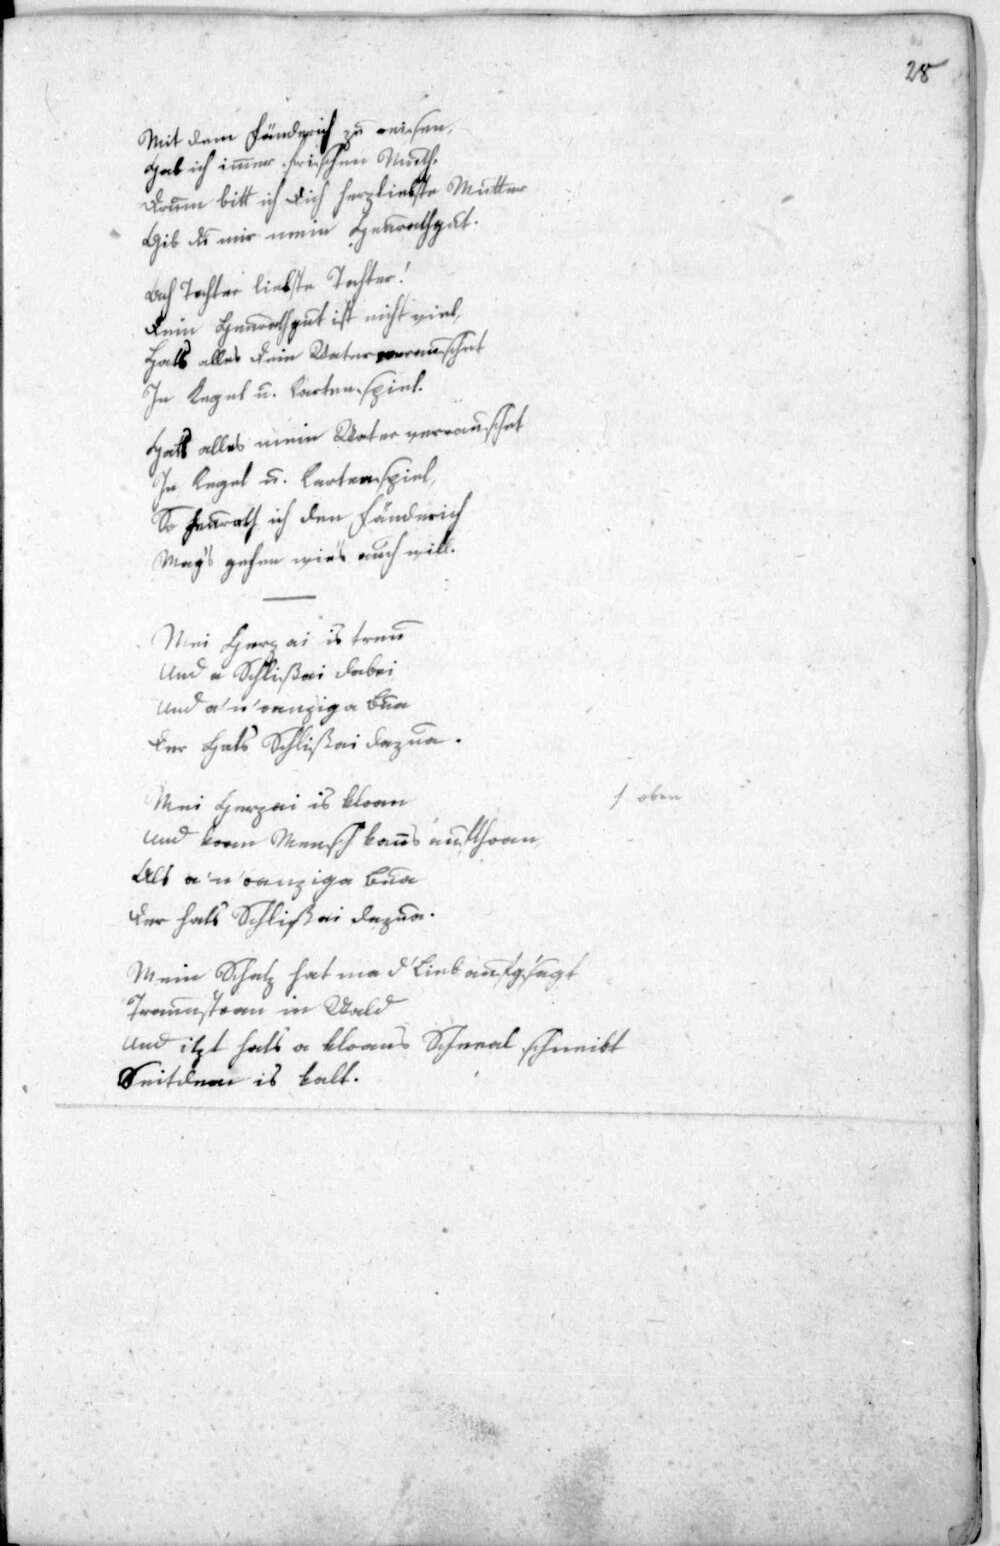 28
Mit dem Fänderich zu reisen,
Hab ich immer frischen Muth.
Drum bitt ich Dich herzliebste Mutter
Gib du mir mein Heurathgut.
Ach Tochter liebste Tochter!
Dein Heurathgut ist nicht viel,
Hats alles Dein Vater verrauschet
In Kegel u. Kartenspiel.
Hats alles mein Vater verrauschet
In Kegel u. Kartenspiel,
So heurath ich den Fänderich
Mags gehen wies auch will.
Mei Herzai is treu
Und a Schlißai dabei
Und a'n'oanziga Bua
Der Hats Schlißai dazua.
Mei Herzai is kloan
s. oben
Und koan Mensch kanns aufthoan
Als a'n'oanziga Bua
Der hats Schlißai dazua.
Mein Schatz hat ma d'Lieb aufg'sagt
Traunstoan in Wald
Und itzt hats a kloans Schneal schneibt
Seitdem is kalt.